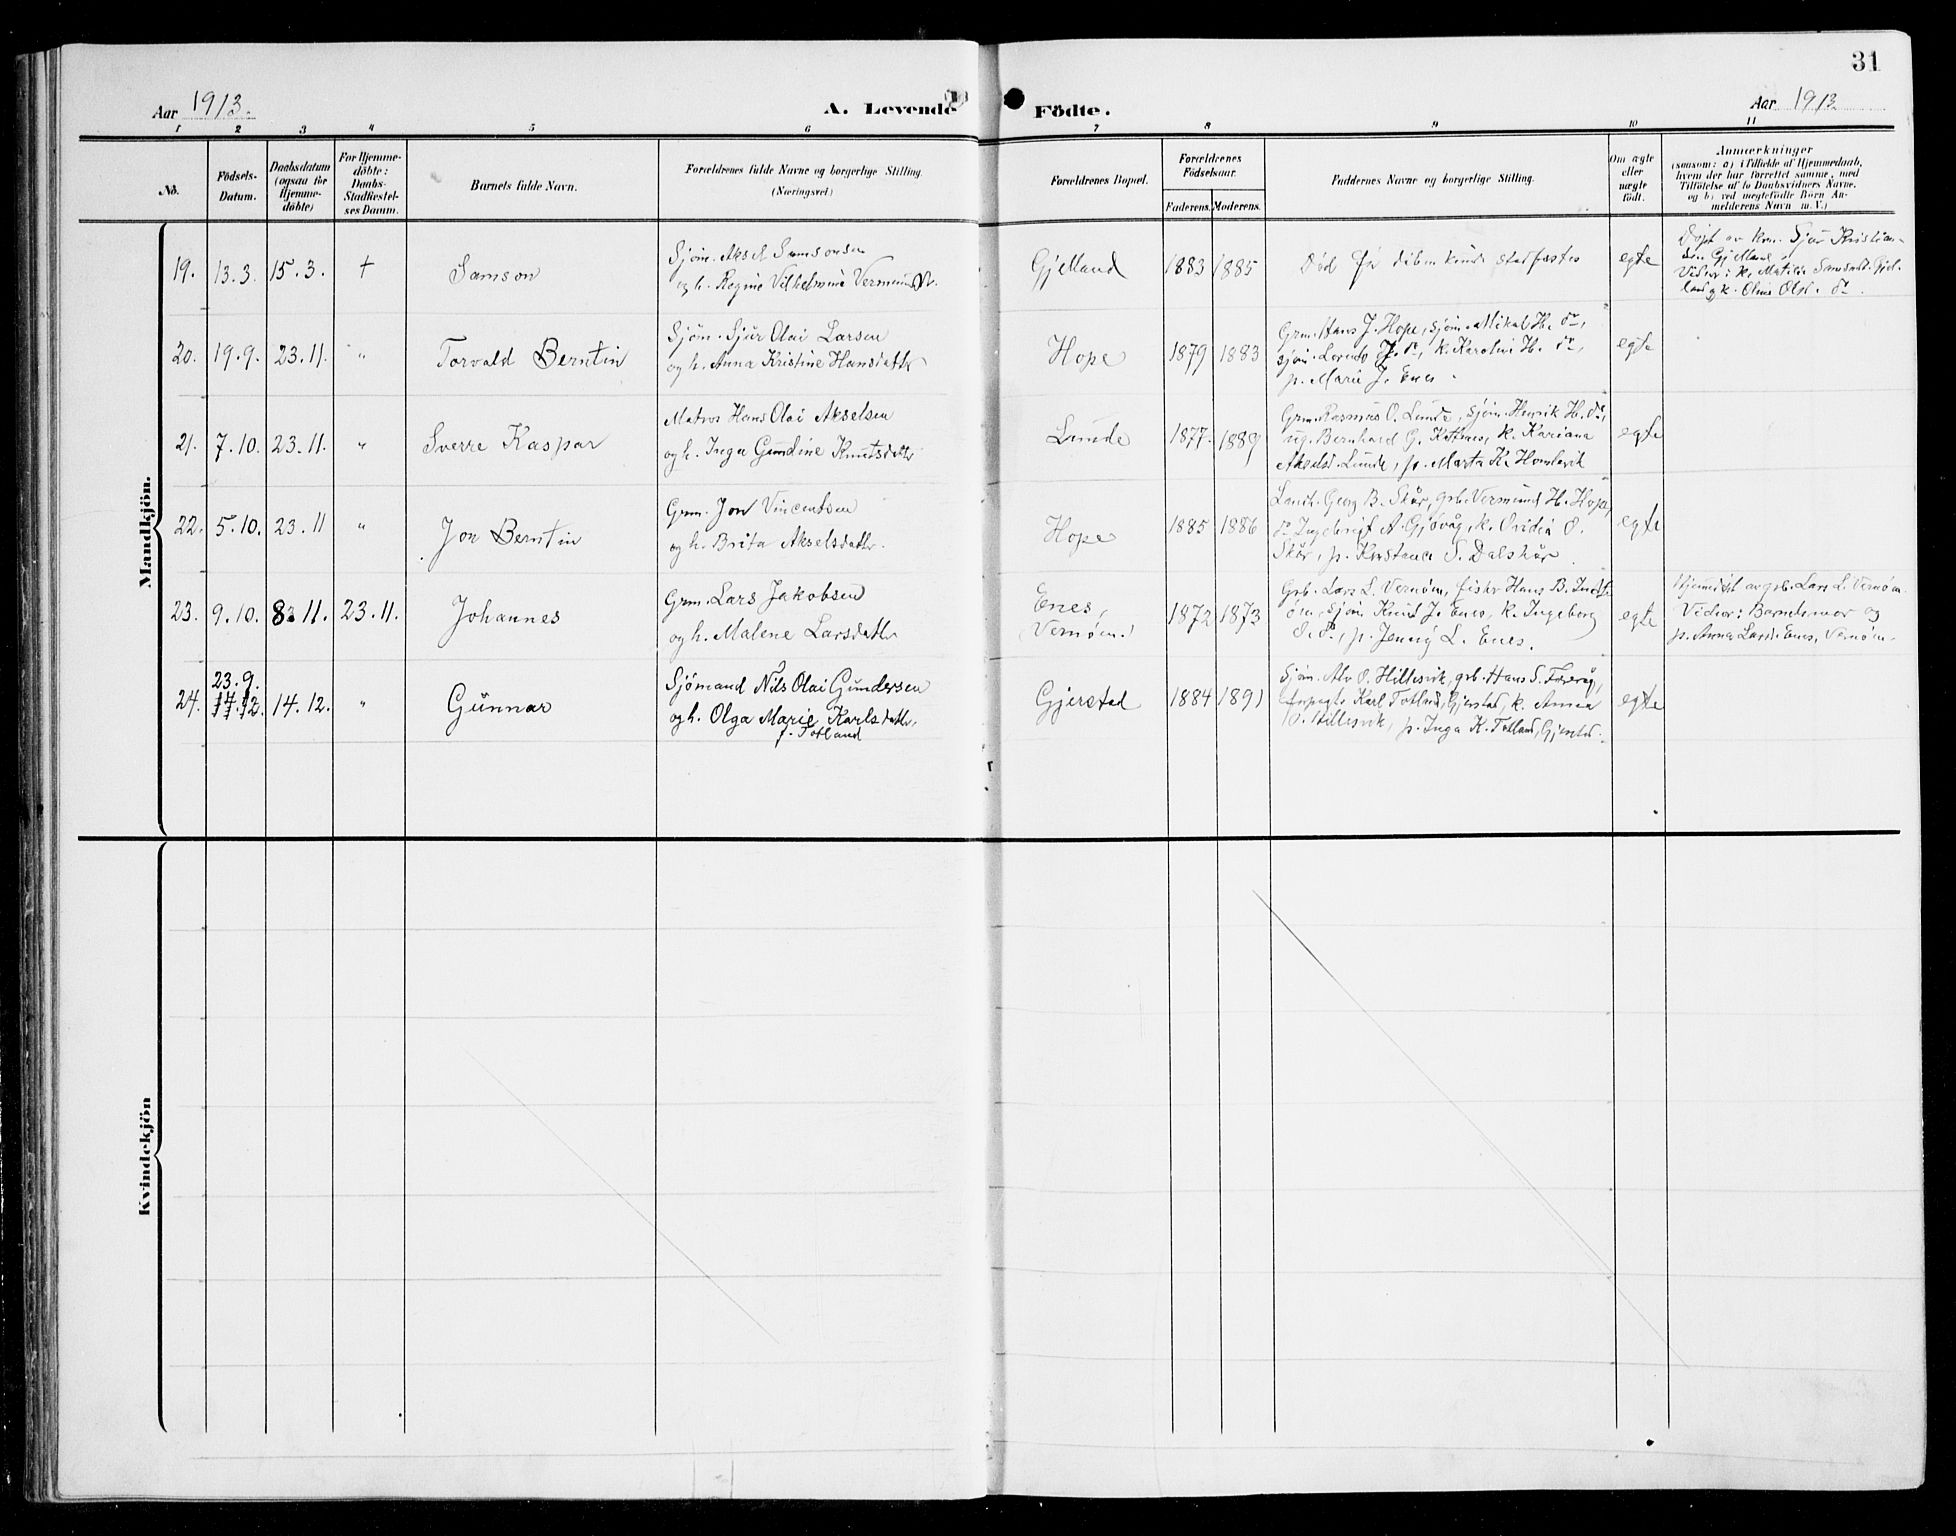 31
Aar 1913.
A. Levende Födte.
Aar 1913
1 2 3 4 5 6 7 8 9 10 11
No.
Födsels-Datum.
Daabsdatum (ogsaa for Hjemme-döbte)
For Hjemme-döbte: Daabs-Stadfæstel-ses Datum.
Barnets fulde Navn.
Forældrenes fulde Navne og borgerlige Stilling. (Næringsvei)
Forældrenes Bopæl.
Forældrenes Födselsaar.
Faderens. Moderens.
Faddernes Navne og borgerlige Stilling.
Om ægte eller uægte födt.
Anmærkninger
(saasom: a) i Tilfælde af Hjemmedaab,
hvem der har forrettet samme, med
Tilföielse af to Daabsvidners Navne.
og b) ved uægtefödte Börn An-
melderens Navn m. V.)
Mandkjön.
19. 13.3. 15.3. † Samson
Sjöm. Aksel Samsonsen
og h. Regine Vilhelmine Vermundsdtr.
Gjelland 1883 1885
Död før dåben kunde stadfæstes
egte
Döpt av krn. Sjur Kristian-
sen Gjelland
Vidner: k. Matilde Samsonsd. Gjel-
land og k. Oline Olsd. do.
20. 19.9. 23.11. " Torvald Berntin
Sjöm. Sjur Olai Larsen
og h. Anna Kristine Hansdatter
Hope 1879 1883
Grm. Hans J. Hope, sjöm. Mikal H. do,
sjöm. Lorents J. do, k. Karolin H. do,
p. Marie J. Enes.
egte
21. 7.10. 23.11. " Sverre Kaspar
Matros Hans Olai Akselsen
og h. Inga Gundine Knutsdatter
Lunde 1877. 1889
Grm. Rasmus O. Lunde, sjöm. Henrik H. do,
ug. Bernhard G. Kattenes, k. Kariana
Akselsd. Lunde, p. Marta K. Homlevik
egte
22. 5.10. 23.11 " Jon Berntin
Grm. Jon Vincentsen
og h. Brita Akselsdatter.
Hope 1885 1886
Landh. Georg B. Skår, grb. Vermund H. Hope,
do Ingebrigt A. Gjövåg, k. Ovidia O.
Skår, p. Kristense S. Dalskår.
egte
23. 9.10. 8.11. 23.11. Johannes
Grm. Lars Jakobsen
og h. Malene Larsdatter
Enes, (Vernöen.) 1872 1873
Grb. Lars L. Vernöen, fisker Hans B. Indst-
öen, sjöm. Knud J. Enes, k. Ingeborg
O. do, p. Jenny L. Enes.
egte
Hjemdöbt av grb. Lars L. Vernöen.
Vidner: Barnets mor og
p. Anna Larsd. Enes, Vernöen.
23.9.
24. 14.12. 14.12. " Gunnar
Sjömand Nils Olai Gundersen
og h. Olga Marie Karlsdatter,
f. Totland
Gjerstad 1884 1891
Sjöm. Alv O. Hillesvik, grb. Hans S. Færevåg,
Karl Totland, Gjerstad, k. Anna
O. Hillesvik, p. Inga K. Totland, Gjerstad.
egte
Kvindekjön